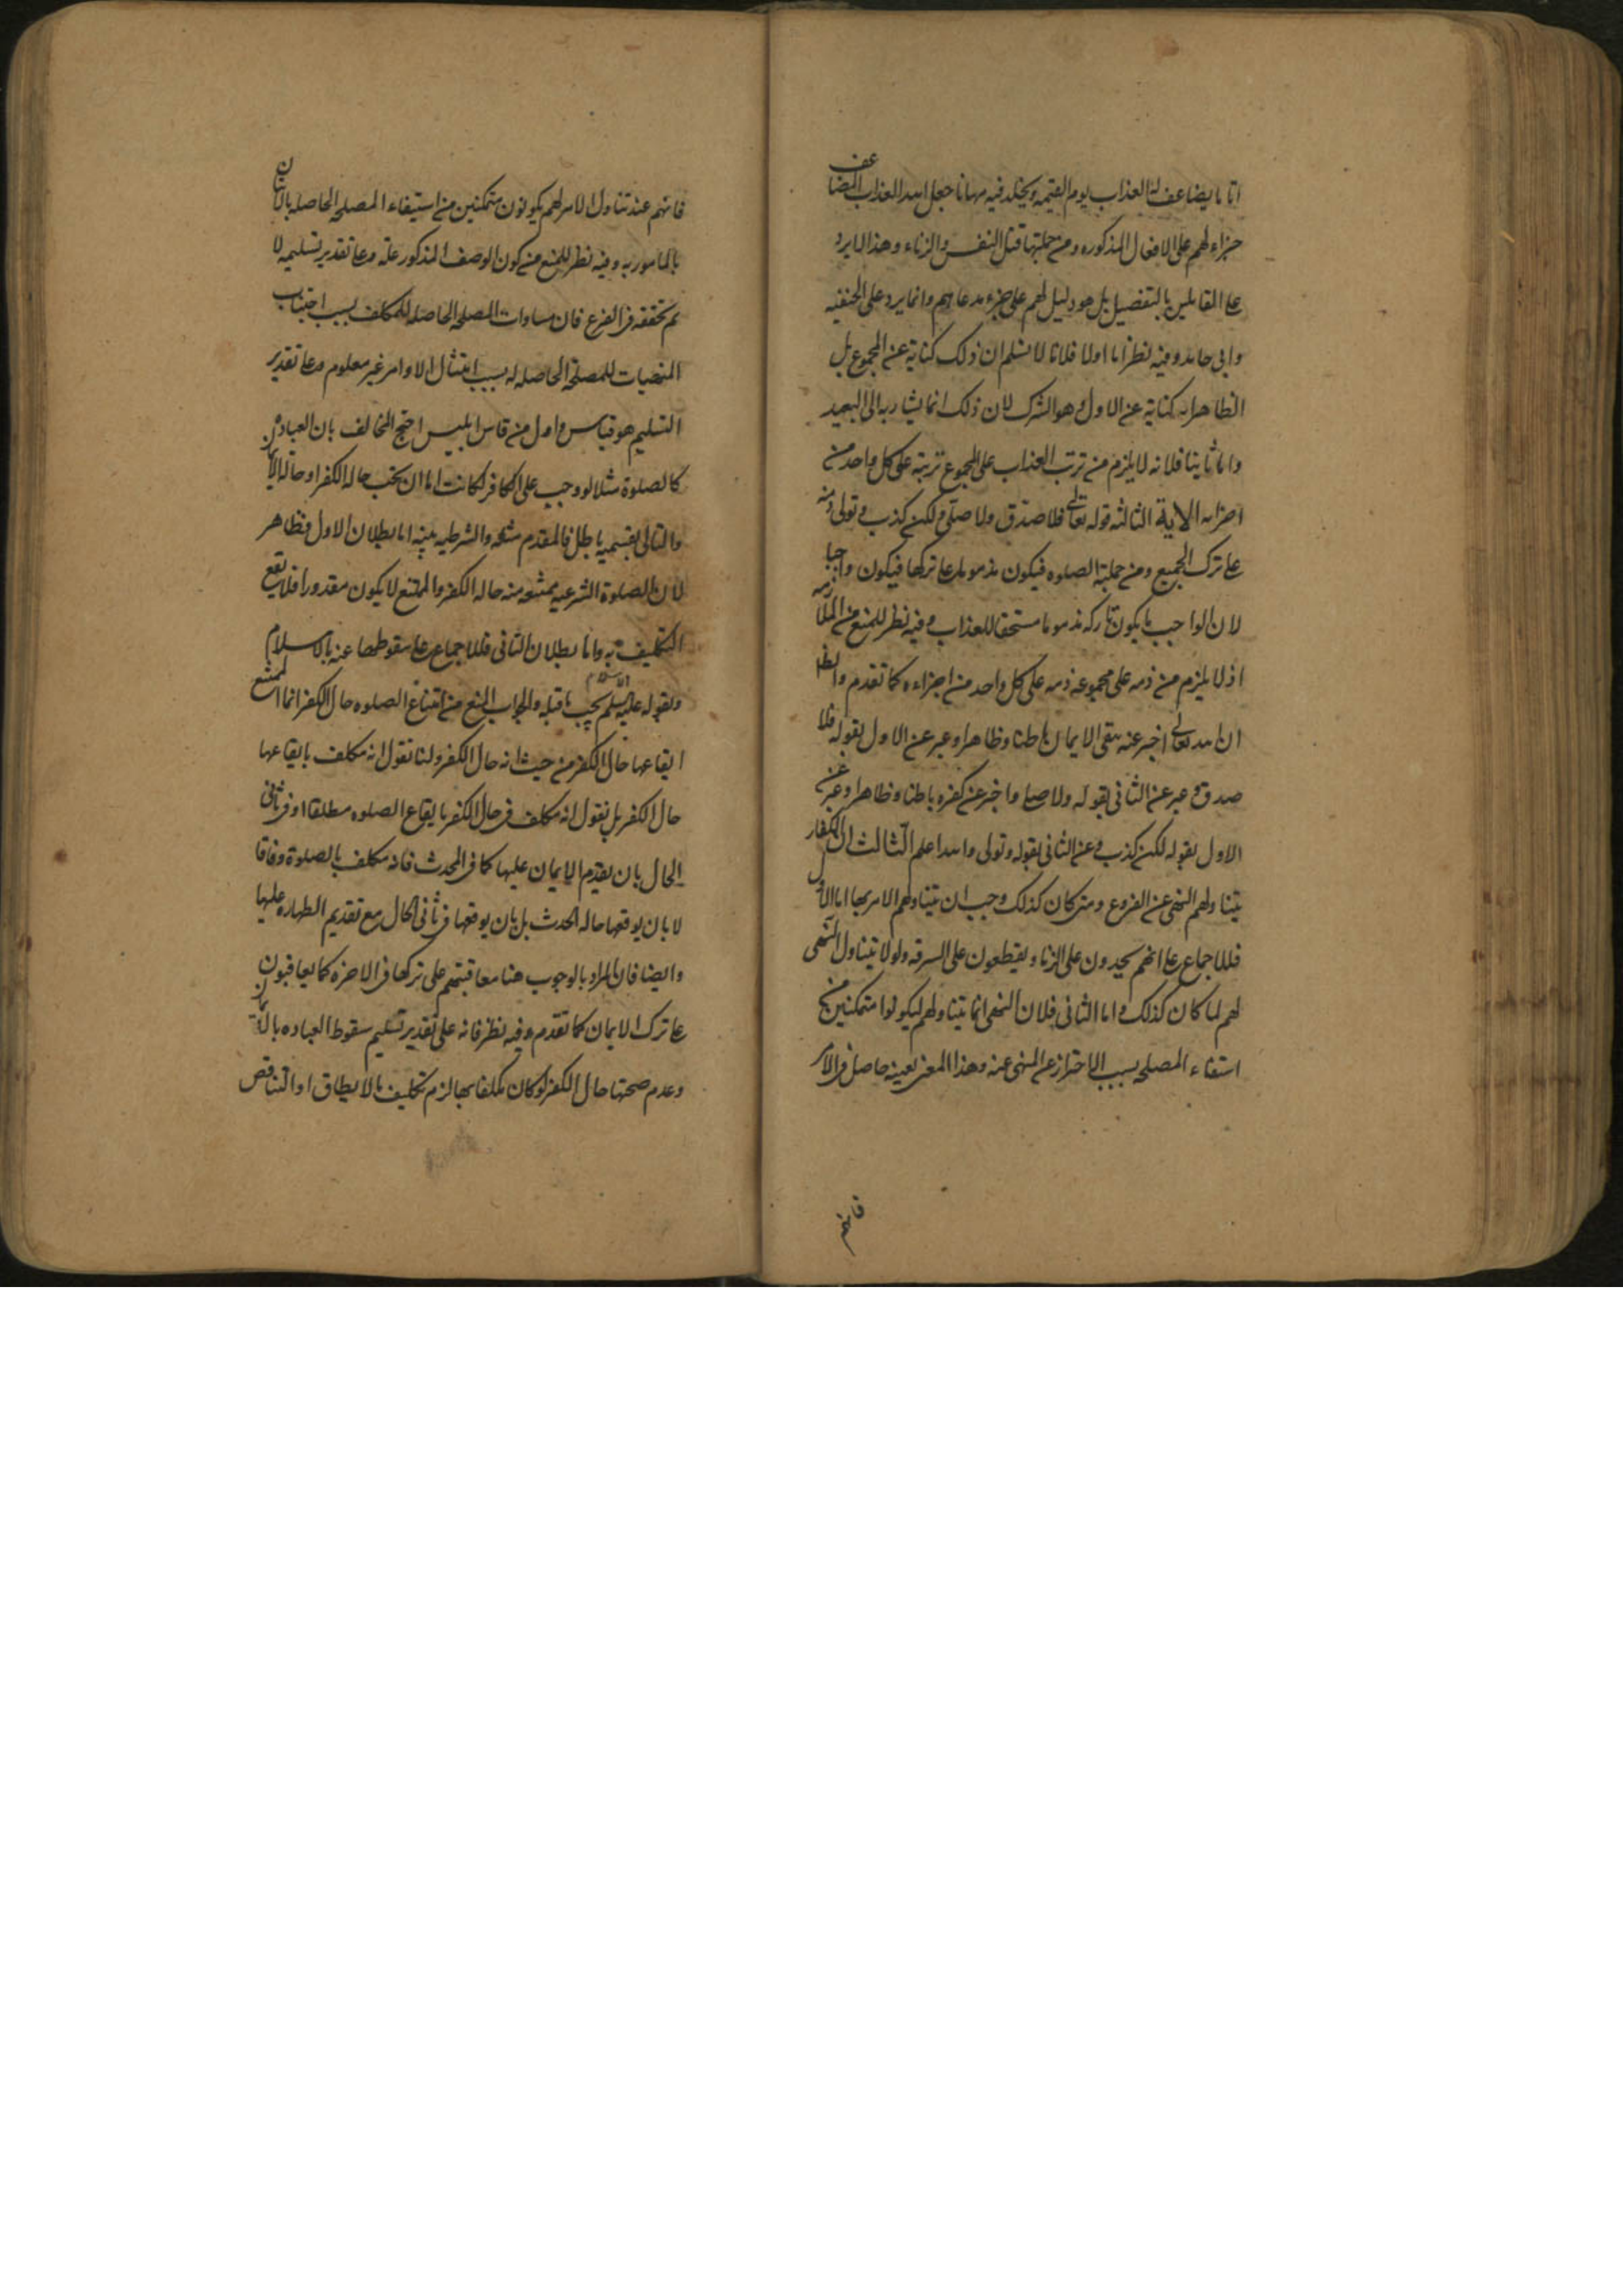 اثاما يضاعف له العذاب يوم القيمه ويخلد فيه مهانا جعل الله العذاب المضاعف
جزاء لهم على الافعال المذكوره ومن جملتها قتل النفس والزناء وهذا لا يرد
على القايلين بالتفصيل بل هو دليل لهم على جزء مدعاهم وانما يرد على الحنفيه
وابى حامد وفيه نظر اما اولا فلانا لا نسلم ان ذلك كناية عن المجموع بل
الظاهر انه كناية عن الاول وهو الشرك لان ذلك انما يشار به الى البعيد
واما ثانيا فلانه لا يلزم من ترتب العذاب على المجموع ترتبه على كل واحد من
اجزائه الاية الثالثه قوله تعالى فلا صدق ولا صلى ولكن كذب وتولى ذمه
على ترك الجميع ومن جملته الصلوه فيكون مذموما على تركها فيكون واجبا
لان الواجب ما يكون تاركه مذموما مستحقا للعذاب وفيه نظر للمنع من الملازمه
اذ لا يلزم من ذمه على مجموعه ذمه على كل واحد من اجزاءه كما تقدم والظا
ان الله تعالى اخبر عنه بنفى الايمان باطنا وظاهرا وعبر عن الاول بقوله فلا
صدق وعبر عن الثانى بقوله ولا صلى واخبر عن كفره باطنا وظاهرا وعبر عن
الاول بقوله لكن كذب وعن الثانى بقوله وتولى والله اعلم الثالث ان الكفار
يتناولهم النهى عن الفروع ومتى كان كذلك وجب ان يتناولهم الامر بها اما الاول
فللاجماع على انهم يحدون على الزنا ويقطعون على السرقه ولولا تناول النهى
لهم لما كان كذلك واما الثانى فلان النهى انما يتناولهم ليكونوا متمكنين من
استفاء المصلحه بسبب الاحتراز عن المنهى عنه وهذا المعنى بعينه حاصل فى الامر
فانهم
فانهم عند تناول الامر لهم يكونون متمكنين من استيفاء المصلحه الحاصله بالاتيان
بالمامور به وفيه نظر للمنع من كون الوصف المذكور علة وعلى تقدير تسليمه لا
نم تحققه فى الفرع فان مساوات المصلحه الحاصله للمكلف بسبب اجتناب
المنهيات للمصلحة الحاصله له بسبب امتثال الاوامر غير معلوم وعلى تقدير
التسليم هو قياس واول من قاس ابليس احتج المخالف بان العباده
كالصلوة مثلا لو وجب على الكافر لكانت اما ان يجب حاله الكفر او حالة الايمان
والتالى بقسميه باطل فالمقدم مثله والشرطيه بينه اما بطلان الاول فظاهر
لان الصلوة الشرعيه ممتنعه منه حاله الكفر والممتنع لا يكون مقدورا فلا يقع
التكليف به واما بطلان الثانى فللاجماع على سقوطها عنه بالاسلام
ولقوله عليه السلم الاسلام يجب ما قبله والجواب المنع من امتناع الصلوه حال الكفر انما الممتنع
ايقاعها حال الكفر من حيث انه حال الكفر ولسنا نقول انه مكلف بايقاعها
حال الكفر بل نقول انه مكلف فى حال الكفر بايقاع الصلوه مطلقا او فى ثانى
الحال بان يقدم الايمان عليها كما فى المحدث فانه مكلف بالصلوة وفاقا
لا بان يوقعها حاله الحدث بل بان يوقعها فى ثانى الحال مع تقديم الطهاره عليها
وايضا فان المراد بالوجوب هنا معاقبتهم على تركها فى الاخره كما يعاقبون
على ترك الايمان كما تقدم وفيه نظر فانه على تقدير تسليم سقوط العباده بالايمان
وعدم صحتها حال الكفر لو كان مكلفا بها لزم تكليف ما لا يطاق او التناقض